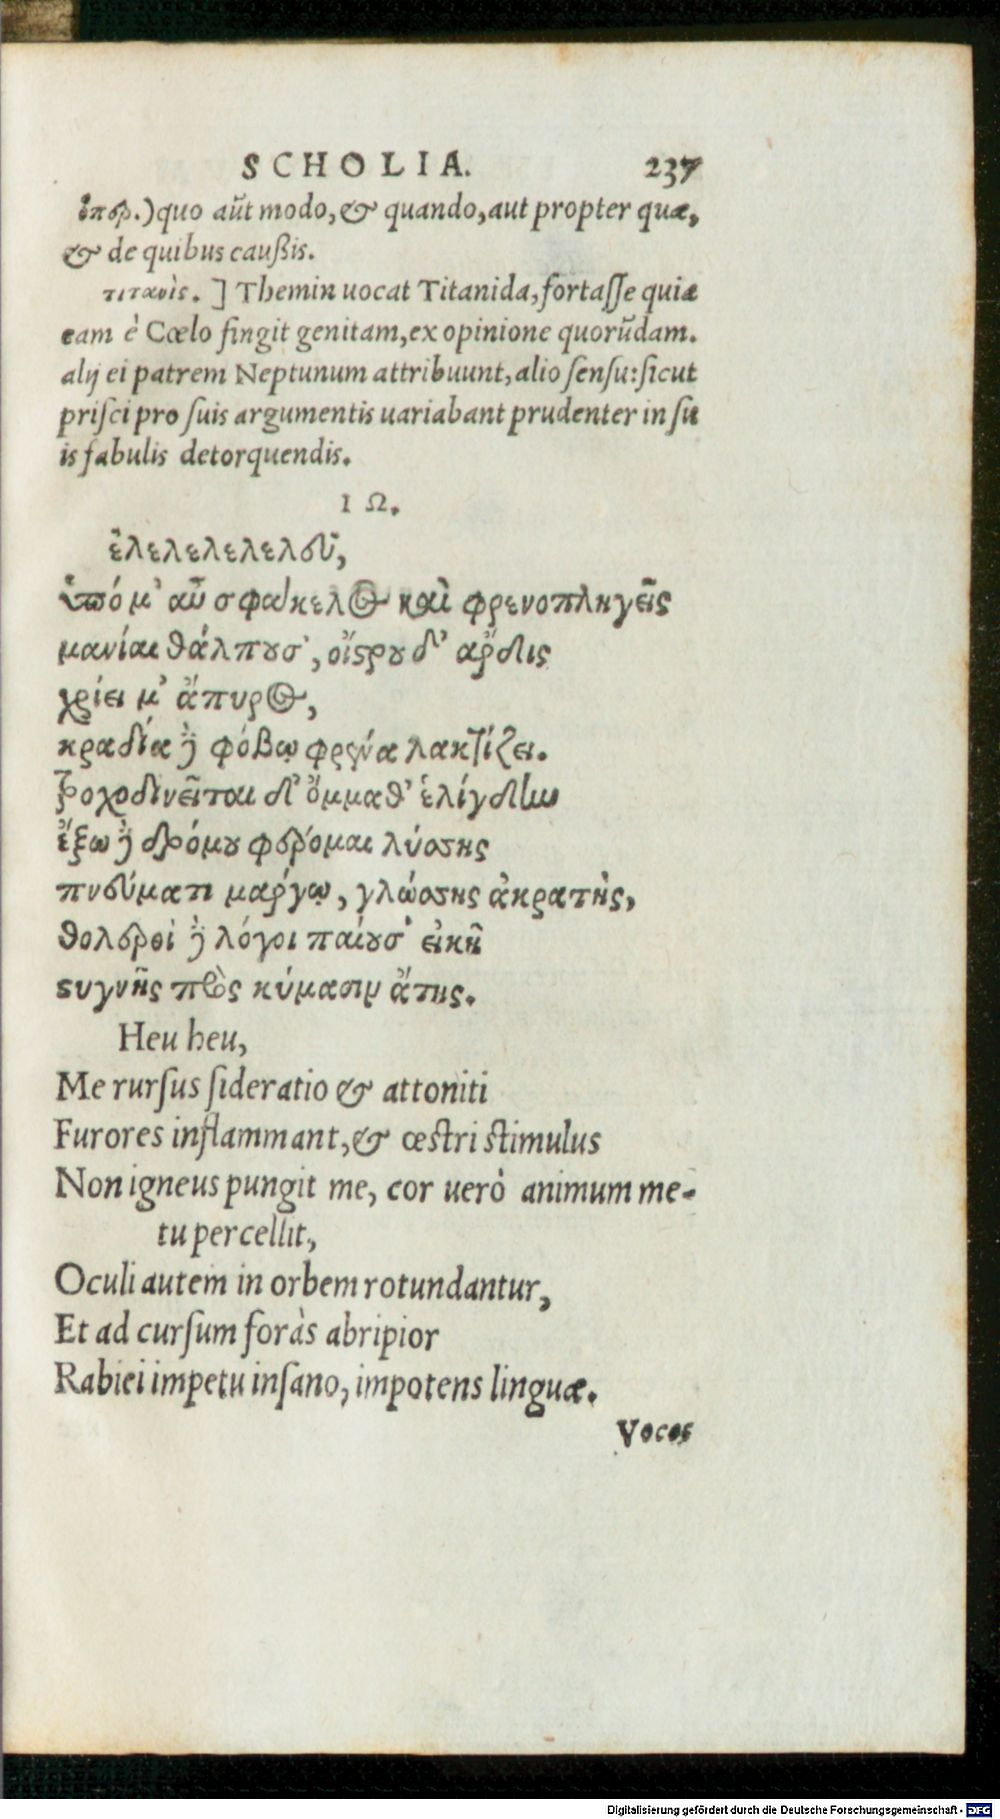 SCHOLIA. 237
ὑπερ.) quo aūt modo, & quando, aut propter quæ,
& de quibus caußis.
τιτανὶς. ] Themin uocat Titanida, fortaſſe quia
eam è Cœlo fingit genitam, ex opinione quorūdam.
alij ei patrem Neptunum attribuunt, alio ſenſu: ſicut
priſci pro ſuis argumentis uariabant prudenter in ſu
is fabulis detorquendis.
Ι Ω.
ἐλελελελελεῦ,
ὑπό μ’ αὖ σφάκελος καὶ φρενοπληγεῖς
μανίαι θάλπουσ’, οἴστρου δ’ ἄρδις
χρίει μ’ ἄπυρος,
κραδία δὲ φόβῳ φρένα λακτίζει.
τροχοδινεῖται δ’ ὄμμαθ’ ἑλίγδην
ἔξω δὲ δρόμου φέρομαι λύσσης
πνεύματι μάργῳ, γλώσσης ἀκρατὴς,
θολεροὶ δὲ λόγοι παίουσ’ εἰκῆ
στυγνῆς πρὸς κύμασιν ἄτης.
Heu heu,
Me rurſus ſideratio & attoniti
Furores inflammant, & œſtri ſtimulus
Non igneus pungit me, cor uerò animum me-
tu percellit,
Oculi autem in orbem rotundantur,
Et ad curſum foràs abripior
Rabiei impetu inſano, impotens linguæ.
Voces
Digitalisierung gefördert durch die Deutsche Forschungsgemeinschaft - DFG